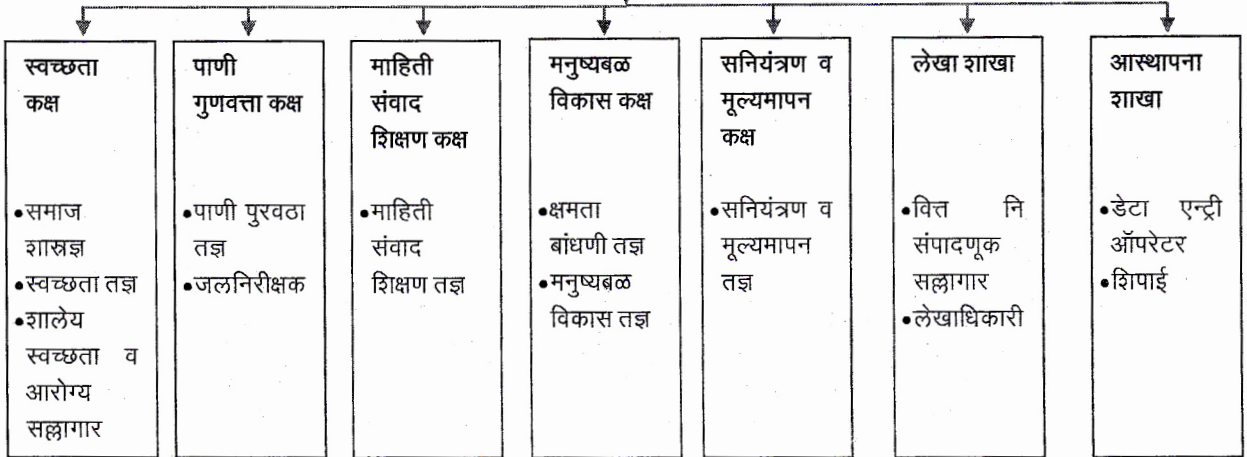 स्वच्छता
कक्ष
•समाज
शास्त्रज्ञ
•स्वच्छता तज्ञ
•शालेय
स्वच्छता व
आरोग्य
सल्लागार
पाणी
गुणवत्ता कक्ष
•पाणी पुरवठा
तज्ञ
•जलनिरीक्षक
माहिती
संवाद
शिक्षण कक्ष
•माहिती
संवाद
शिक्षण तज्ञ
मनुष्यबळ
विकास कक्ष
•क्षमता
बांधणी तज्ञ
•मनुष्यबळ
विकास तज्ञ
सनियंत्रण व
मूल्यमापन
कक्ष
•सनियंत्रण व
मूल्यमापन
तज्ञ
लेखा शाखा
•वित्त नि
संपादणूक
सल्लागार
•लेखाधिकारी
आस्थापना
शाखा
•डेटा एन्ट्री
ऑपरेटर
•शिपाई